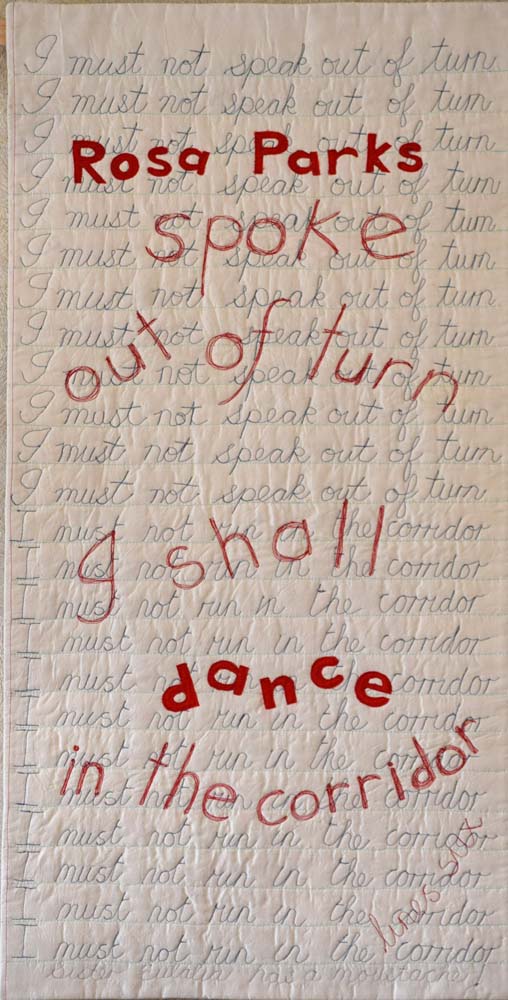 I must not speak out of turn
I must not speak out of turn
I must not speak out of turn
I must not speak out of turn
I must not speak out of turn
I must not speak out of turn
I must not speak out of turn
I must not speak out of turn
I must not speak out of turn
I must not speak out of turn
I must not speak out of turn
I must not speak out of turn
I must not run in the corridor
I must not run in the corridor
I must not run in the corridor
I must not run in the corridor
I must not run in the corridor
I must not run in the corridor
I must not run in the corridor
I must not run in the corridor
I must not run in the corridor
I must not run in the corridor
I must not run in the corridor
I must not run in the corridor
Sister has a moustache
Rosa Parks
spoke
out of turn
I shall
dance
in the corridor
lines